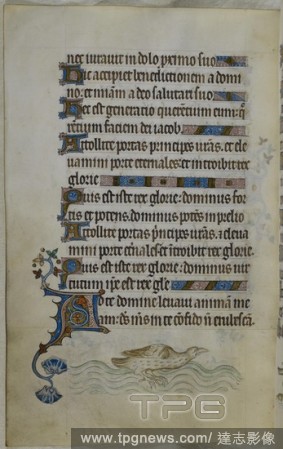 nec iuravit in dolo primo suo
Hic accipiet benedictionem a domi
no: et miam a deo salutari suo
Hec est generatio querentium eum: q
rentium faciem dei iacob
Attollite portas principes vras: et ele
vamini porte eternales: et introibit rex
glorie
Quis est iste rex glorie: dominus for
tis et potens: dominus potens in prelio
Attollite portas principes vras: et eleva
mini porte eternales et introibit rex glorie.
Quis est iste rex glorie: dominus vir
tutum ipse est rex glorie
Ad te domine levavi animam me
am: deus meus in te confido non erubescam.
TPG
www.tpgnews.com/ 達志影像